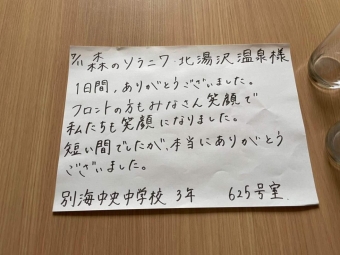 7/11 森のソラニワ 北湯沢温泉様
1日間、ありがとうございました。
フロントの方もみなさん笑顔で
私たちも笑顔になりました。
短い間でしたが、本当にありがとう
ございました。
別海中央中学校 3年 625号室